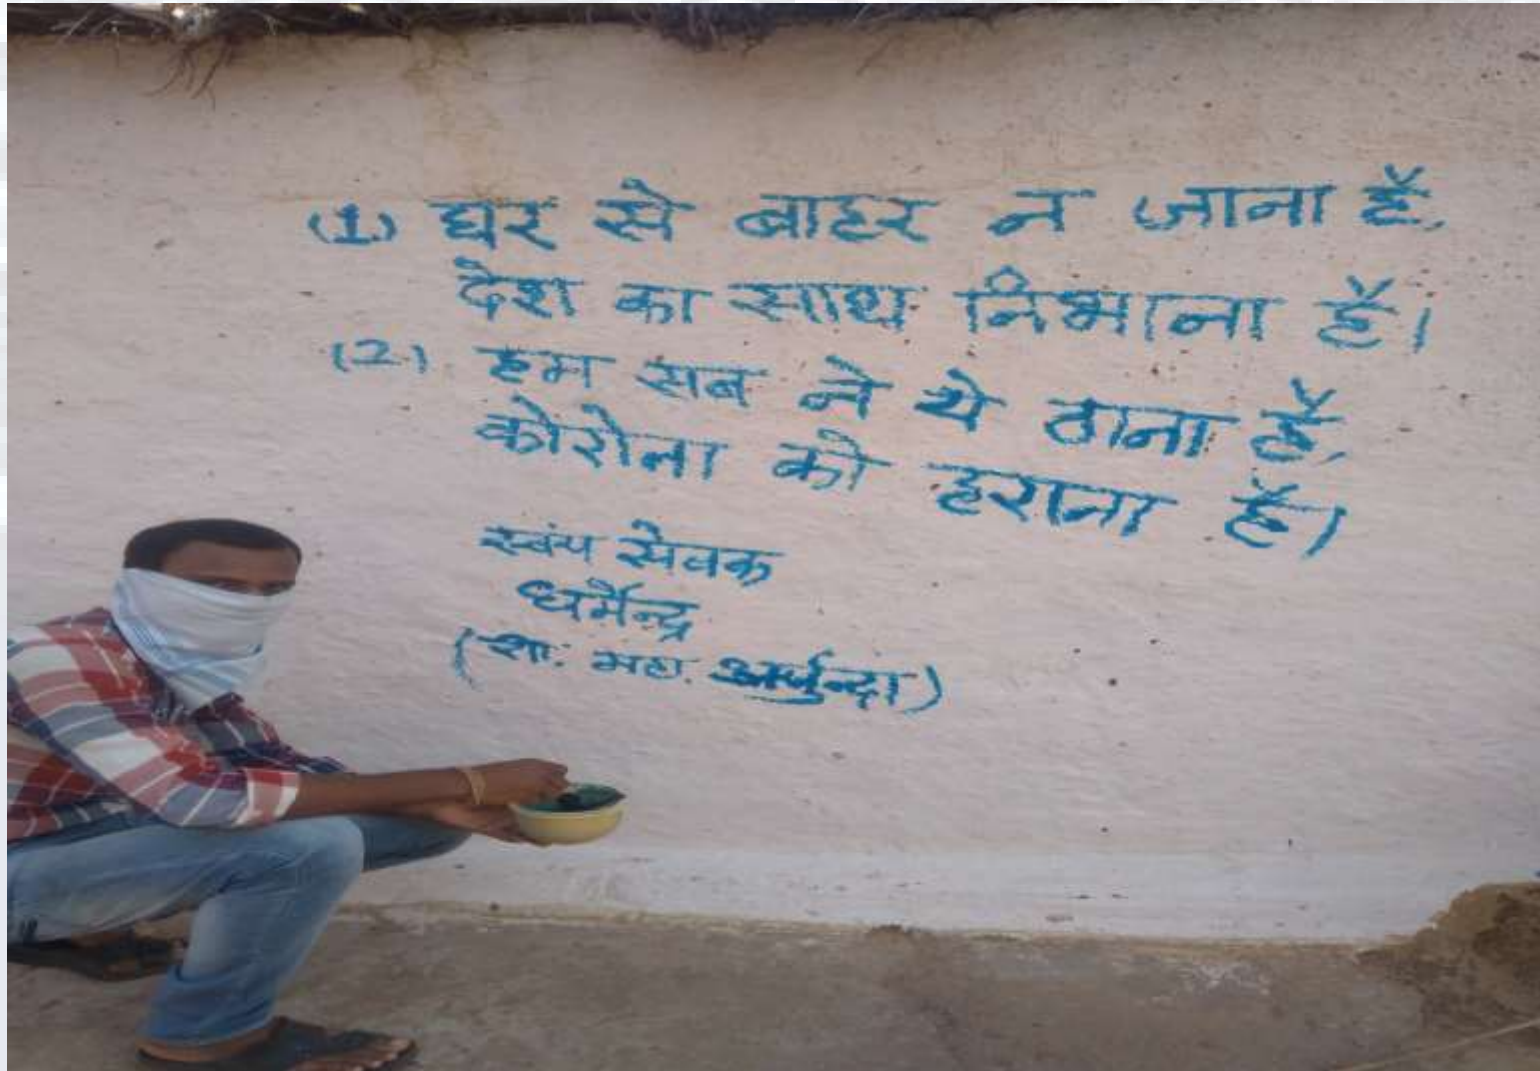 (1) घर से बाहर न जाना है,
देश का साथ निभाना है।
(2) हम सब ने ये ठाना है,
कोरोना को हराना है।
स्वंय सेवक
धर्मेन्द्र
(शा. महा. अर्जुन्दा)